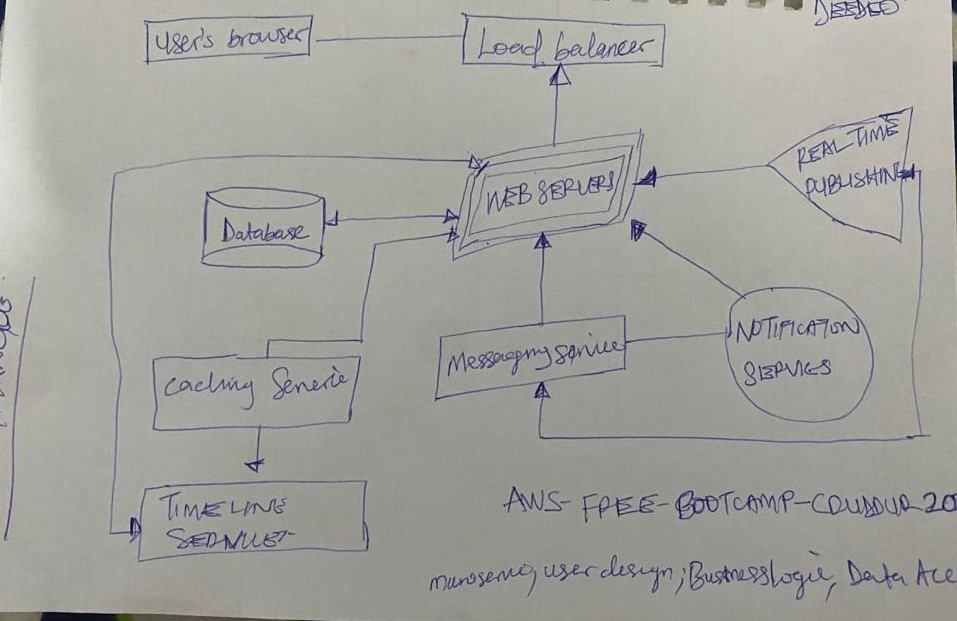 DEEDED
User's browser
Load balancer
REAL TIME
PUBLISHING
WEB SERVERS
Database
NOTIFICATION
SERVICES
Messaging Service
Caching Service
TIMELINE
AWS-FREE-BOOTCAMP-CRUDDUR 20
user design; Business Logic, Data Acce